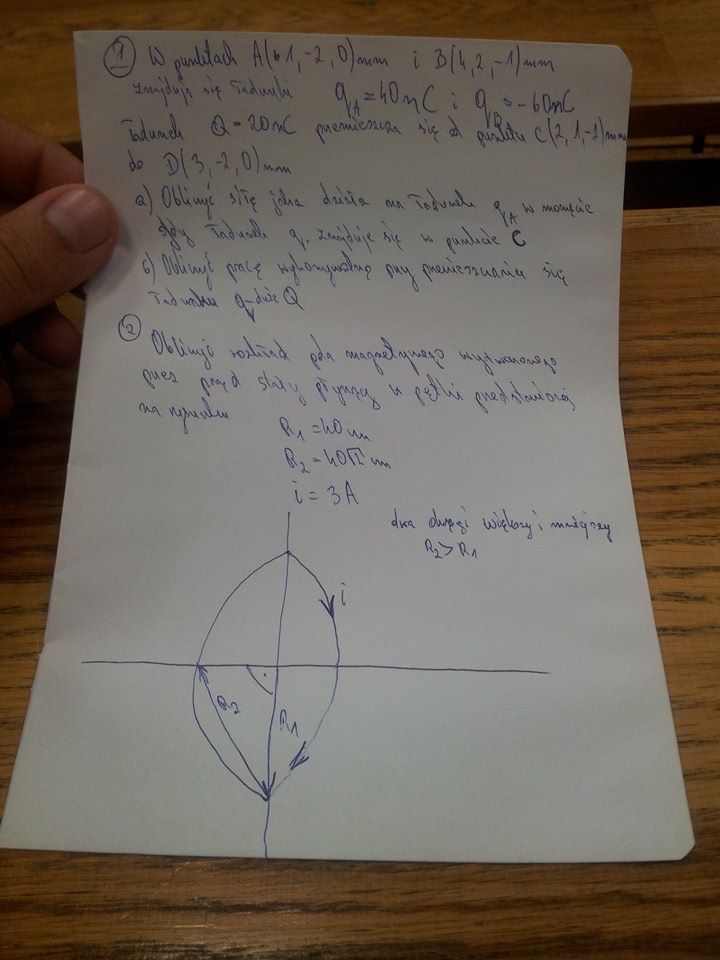 1 W punktach A(1,-2,0)mm i B(4,2,-1)mm
znajdują się ładunki qA=40nC i qB=-60nC
Ładunek Q=20nC przemieszcza się od punktu C(2,1,-2)mm
do D(3,-2,0)mm
a) Obliczyć siłę jaka działa na ładunek qA w momencie
gdy ładunek q znajduje się w punkcie C
b) Obliczyć pracę wykonywaną przy przemieszczaniu się
ładunku Q
2 Obliczyć rozkład pola magnetycznego wytwarzanego
przez prąd stały płynący w pętli przedstawionej
na rysunku
R1=40 mm
R2=40√2 mm
i=3A
dwa okręgi większy i mniejszy
R2>R1
i
R2
R1